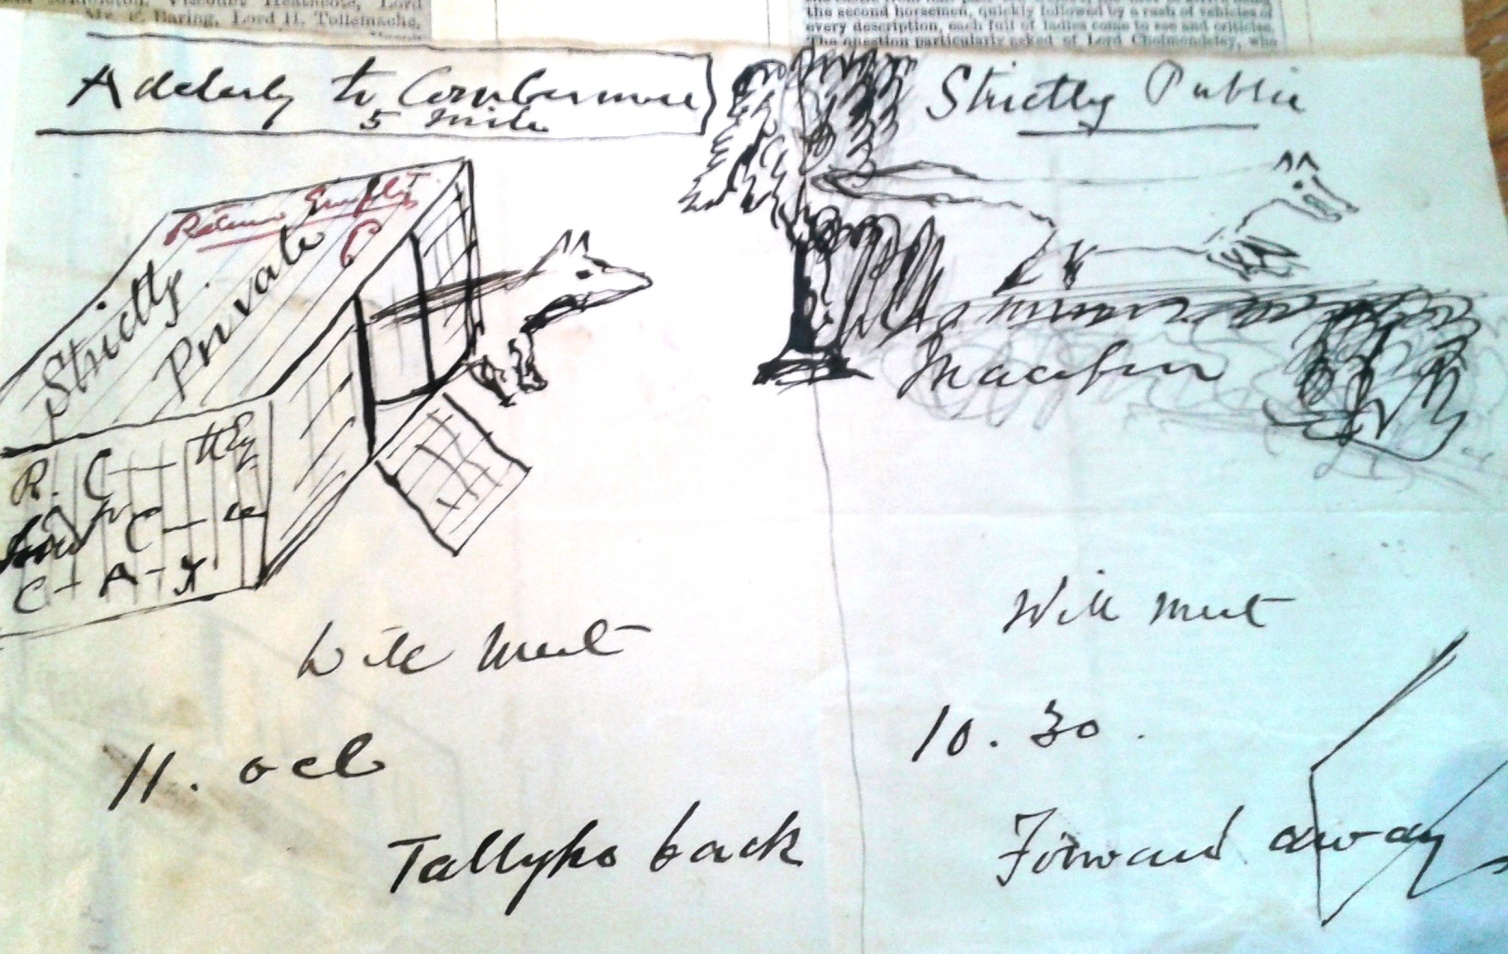 Mr. E. Baring, Lord H. Tollemache,
the second horsemen, quickly followed by a rush of vehicles of
every description, each full of ladies come to see and criticise.
The question particularly asked of Lord Cholmondeley, who
Adderly to Combermere
5 mile
Strictly Public
Return Empty
Strictly
Private
R. C
C
C - A - x
Will meet
11. ocl
Tallyho back
Will meet
10.30.
Forward away